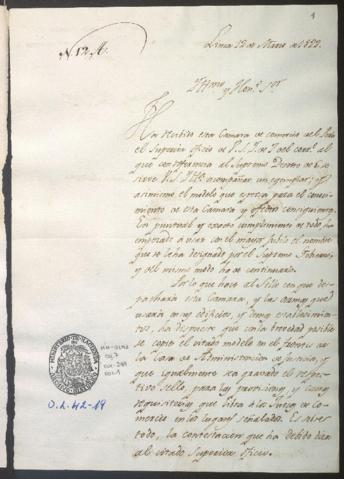 1
N. 12 A.
Lima 12 de Marzo de 1822.
Yltmo
y Hon.e Sor.
Ha recibido esta Camara de comercio del
el Superior oficio de V.S.I. de 7 del corr.te al
que con referencia al Supremo Decreto de 6 se
sirve V.S. acompañar un exemplar, y
asimismo el modelo que para el conoci-
miento de esta Camara y efectos consiguientes.
En puntual y exacto cumplimiento de todo, ha
empezado a usar con el mayor jubilo el nombre
que se le ha designado por el Supremo Gobierno,
y del mismo modo ha de continuarlo.
Por lo que hace al Sello con que des-
pachará esta Camara, y las armas que
usará en edificios, y demas
tos, ha dispuesto que con la brevedad posible
se copie el citado modelo en el de
la Casa de Administracion de Justicia, y
que igualmente sea gravado el respec-
tivo sello, para las provisiones, y demas
requisitorias que libra a los Jueces de Co-
mercio en los lugares señalados. Es
todo, la contestacion que ha debido dar
al citado Superior Oficio.
MINISTERIO DE HACIENDA
O.L. 42-19